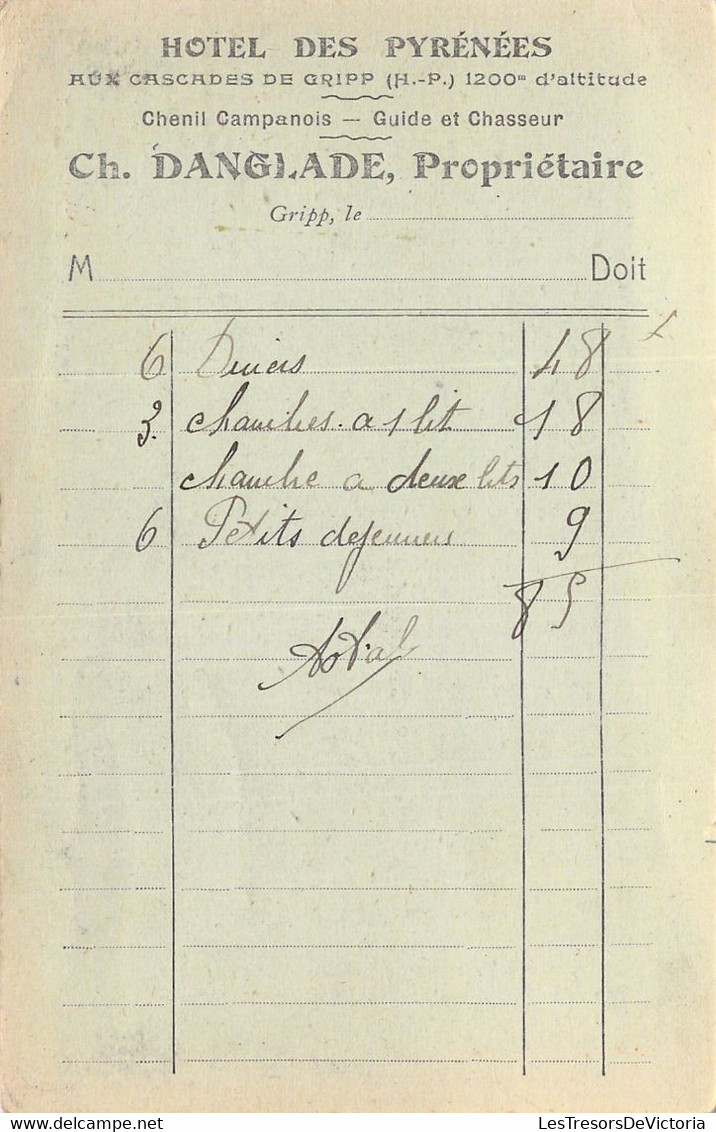 HOTEL DES PYRÉNÉES
AUX CASCADES DE GRIPP (H.-P.) 1200m d'altitude
Chenil Campanois — Guide et Chasseur
Ch. DANGLADE, Propriétaire
Gripp, le
M Doit
6 Diners 48
3. chambres a 1 lit 18
chambre a deux lits 10
6 Petits dejeuners 9
85
LesTresorsDeVictoria